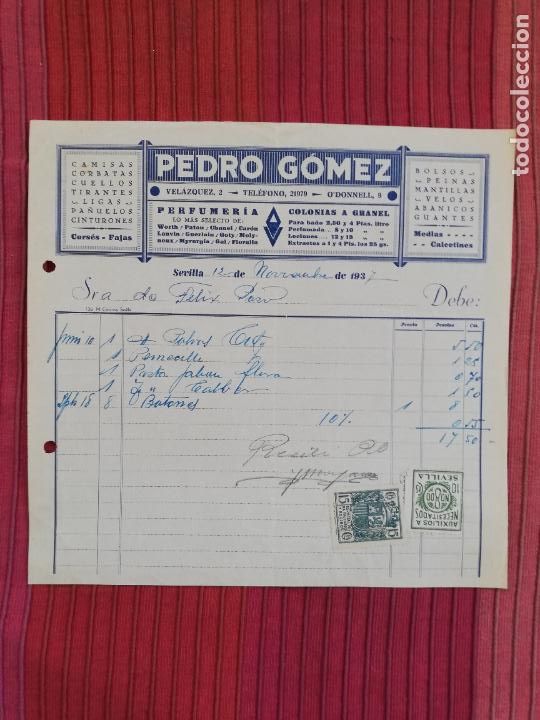 CAMISAS
CORBATAS
CUELLOS
TIRANTES
LIGAS
PAÑUELOS
CINTURONES
Corsés - Fajas
PEDRO GÓMEZ
VELÁZQUEZ, 2 — TELÉFONO, 21979 — O'DONNELL, 9
PERFUMERÍA
LO MÁS SELECTO DE:
Worth / Patou / Chanel / Carón
Lanvin / Guerlain / Coty / Moly-
neux / Myrurgia / Gal / Floralia
COLONIAS A GRANEL
Para baño 2,50 y 4 Ptas. litro
Perfumada 8 y 10 " "
Lociones 12 y 15 " "
Extractos a 1 y 4 Ptas. los 25 grs.
BOLSOS
PEINAS
MANTILLAS
VELOS
ABANICOS
GUANTES
Medias
Calcetines
Sevilla 12 de Noviembre de 1937
Sra de Felix Debe:
Precio Pesetas Cts.
junio 10 1 Polvos Coty 5 50
1 1 25
1 Pasta jabon flora 0 70
1 " " 1 50
Sbre 18 8 Botones 1 8
10% 0 55
17 50
Recibi
15 15
AUXILIOS A
NECESITADOS
NO8DO
10 10
SEVILLA
todocoleccion.net